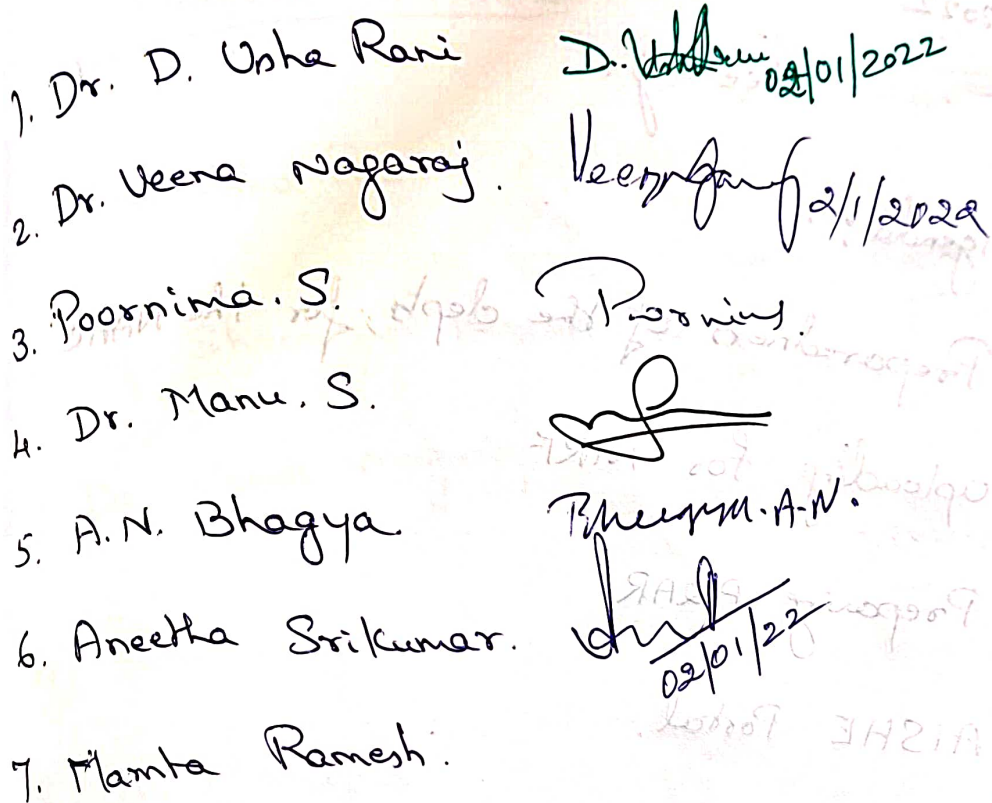 1. Dr. D. Usha Rani D. Usha Rani 02/01/2022
2. Dr. Veena Nagaraj. 2/1/2022
3. Poornima. S. Poornima.
4. Dr. Manu. S.
5. A.N. Bhagya Bhagya. A.N.
6. Aneetha Srikumar. 02/01/22
7. Mamta Ramesh.